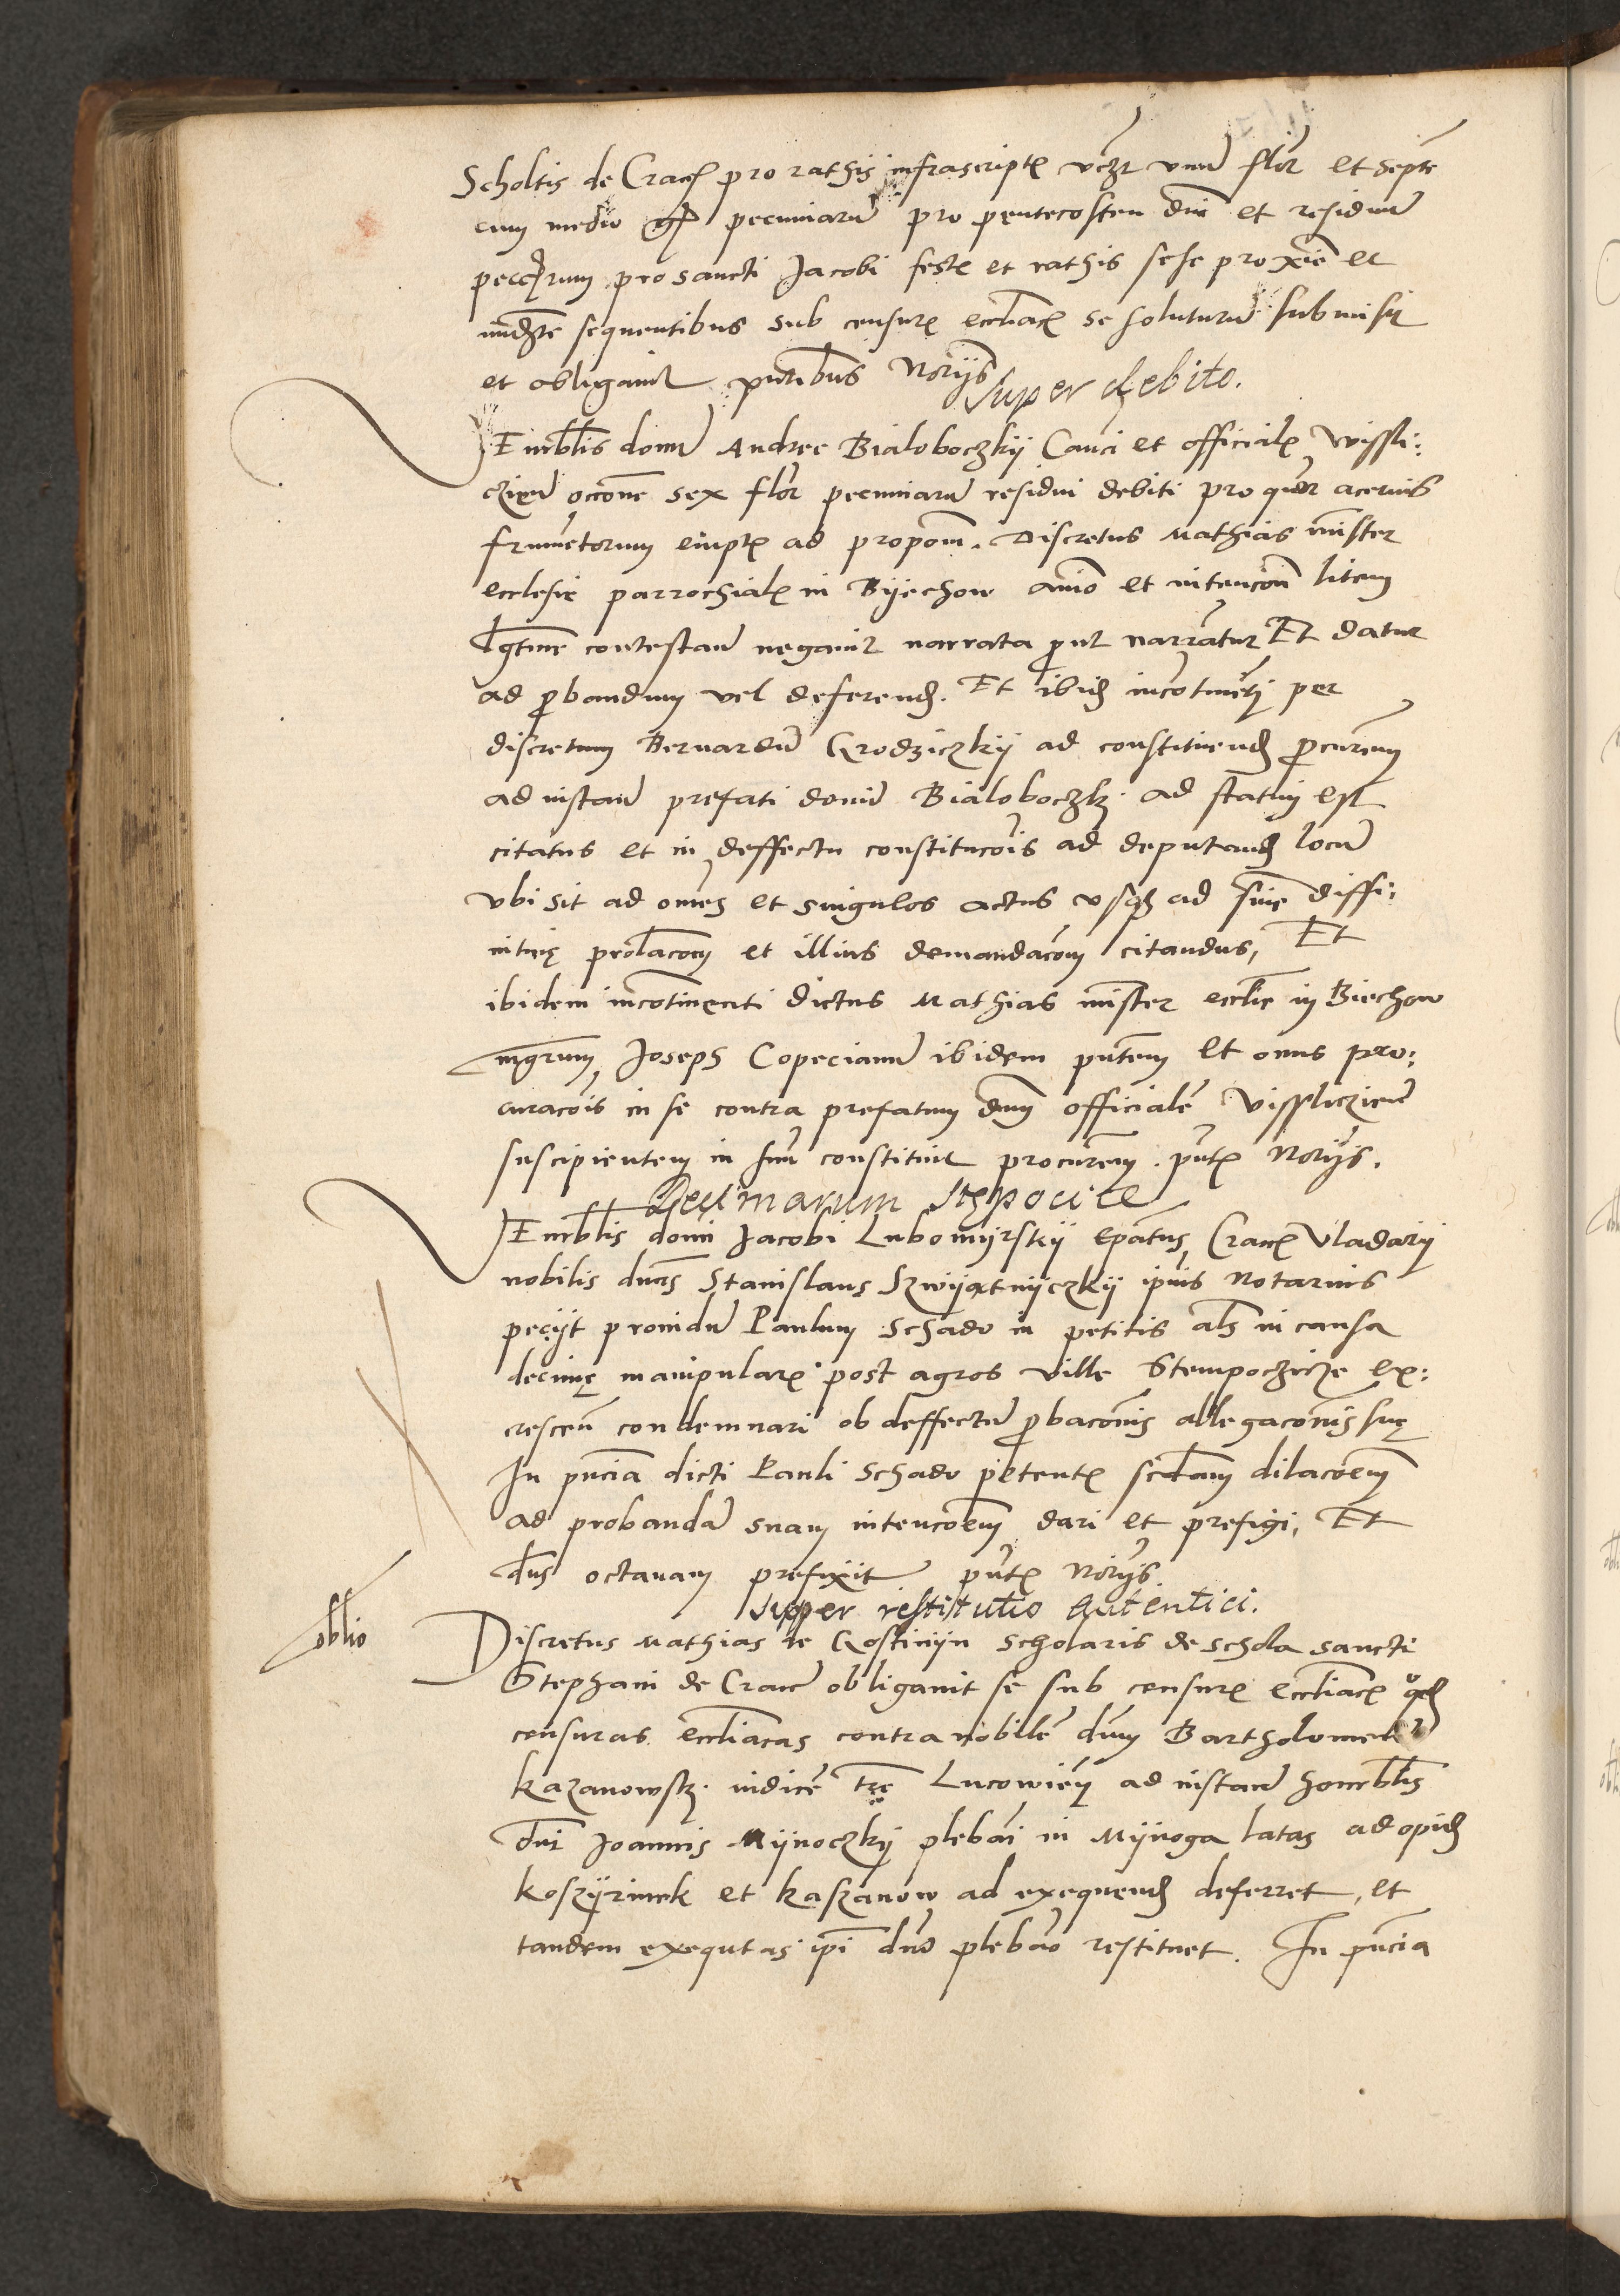 Scholtis de Crac pro rathis infrascript vczt vnu flor et septe
cum medio gr pecuniaru pro pentecosten dni et residuu
pro sancti Jacobi fest et rathis sese proxie et
sequentibus sub censur eccliac se soluturu submisit
et obligauit pntibus Norijs
Super debito.
Enrblis domi Andree Bialoboczkij Canci et official Wissli:
czien occone sex flor pecuniaru residui debiti pro quor aceruis
frumetorum empt ad propom. Discretus Mathias mister
ecclesie parrochial in Byechow anio et intencon litem
contestan negauit narrata prut narratur Et datur
ad probandum vel deferend. Et ibid incotineti per
discretum Bernardu Grodziczkij ad constituend procurem
ad instan prefati domi Bialoboczk ad statim est
citatus et in deffectu constitucois ad deputand locu
vbi sit ad omes et singulos actus vsq ad snie diffi:
nitiuę prolacom et illius demandacom citandus, Et
ibidem incotinenti dictus Mathias mister ecclie in Biechow
mgrum Joseph Copecianu ibidem pntem et onus pro:
curacois in se contra prefatum dnm officiale Vissliczien
suscipientem in suu constituit procurem. pnt Norijs.
Decimarum Stępocice
Enrblis domi Jacobi Lubomijrskij epatus Crac Vladarij
nobilis dnus Stanislaus Szwijatnijczkij ipius Notarius
pecijt prouidu Paulum Schado in petitis als in causa
decimę manipular post agros ville Stempoczicze ex:
crescen condemnari ob deffectu probaconis allegaconis suę
In pncia dicti Pauli Schado petent scdam dilacoem
ad probanda suam intencoem dari et prefigi, Et
dus octauam prefixit pnt Norijs
Super restitutio Autentici.
oblio
Discretus Mathias de Gostinijn scholaris de schola sancti
Stephani de Crac obligauit se sub censur eccliac qd
censuras eccliacas contra nobile dnm Bartholomeu
Kazanowsk iudice tre Lucowien ad instan honrblis
dni Joannis Mijnoczkij plebai in Mijnoga latas ad opid
Koszyrinek et Kaszanow ad exequend deferret, et
tandem exequtas ipi dno plebao restituet. In pncia